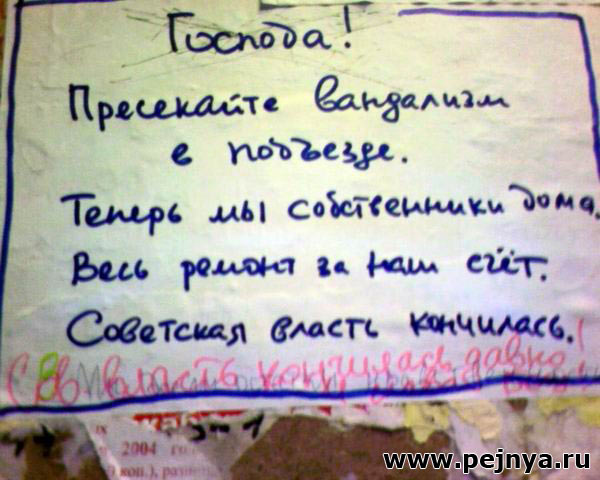 Господа!
Пресекайте вандализм
в подъезде.
Теперь мы собственники дома.
Весь ремонт за наш счёт.
Советская власть кончилась.
власть кончилась давно
2004 го
коп.),
www.pejnya.ru